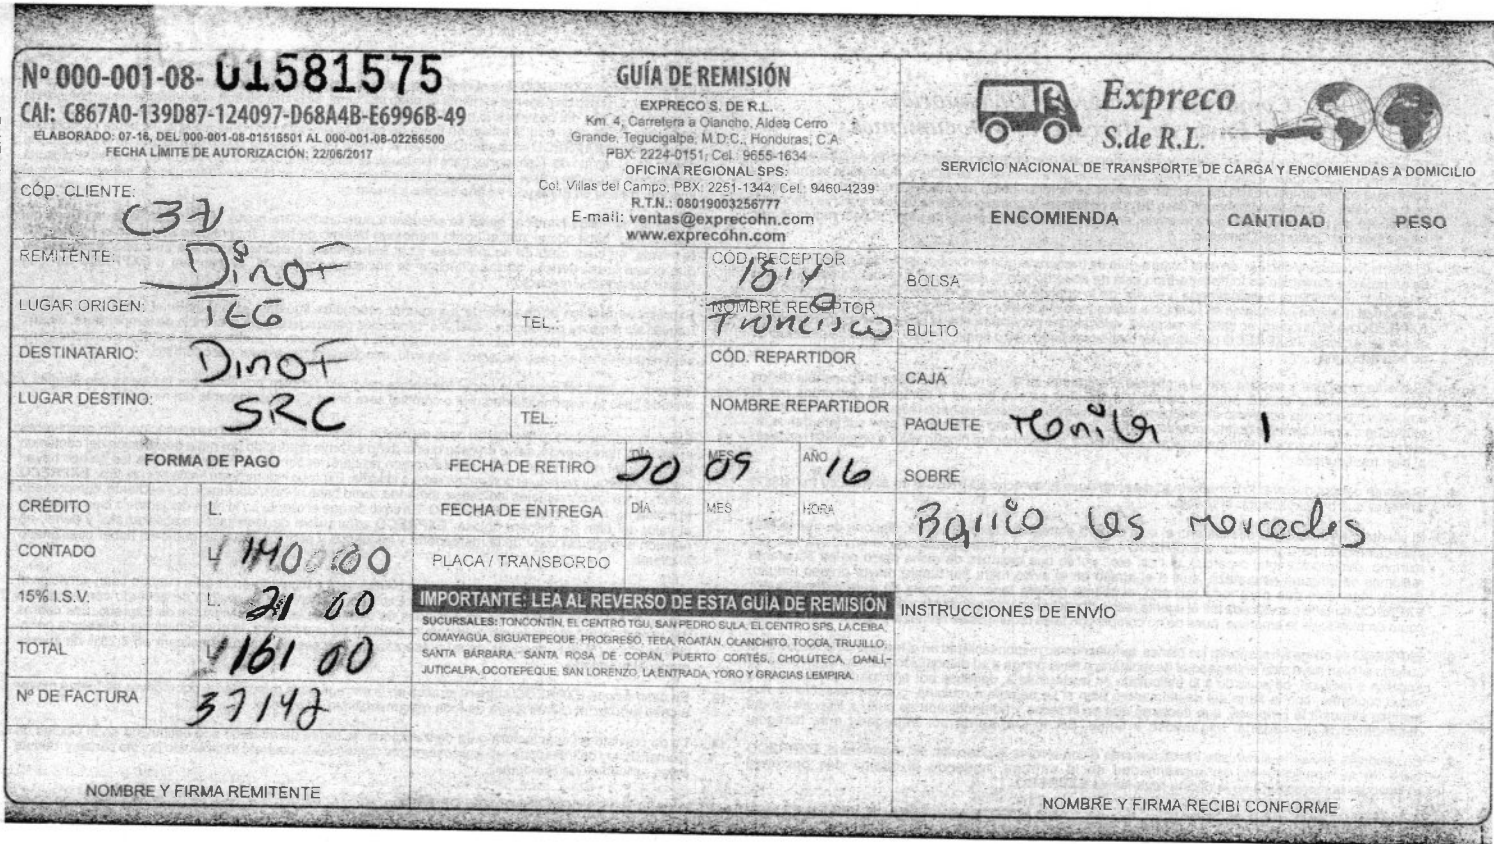 Nº 000-001-08- 01581575
CAI: C867A0-139D87-124097-D68A4B-E6996B-49
ELABORADO: 07-16, DEL 000-001-08-01516501 AL 000-001-08-02266500
FECHA LÍMITE DE AUTORIZACIÓN: 22/06/2017
GUÍA DE REMISIÓN
EXPRECO S. DE R.L.
Km. 4, Carretera a Olancho, Aldea Cerro
Grande, Tegucigalpa, M.D.C., Honduras, C.A.
PBX: 2224-0151, Cel.: 9655-1634
OFICINA REGIONAL SPS:
Col. Villas del Campo, PBX: 2251-1344, Cel.: 9460-4239
R.T.N.: 08019003256777
E-mail: ventas@exprecohn.com
www.exprecohn.com
Expreco
S.de R.L.
SERVICIO NACIONAL DE TRANSPORTE DE CARGA Y ENCOMIENDAS A DOMICILIO
CÓD. CLIENTE: C37
REMITENTE: Dinof
CÓD. RECEPTOR
LUGAR ORIGEN: TEG TEL.:
NOMBRE RECEPTOR Francisco
DESTINATARIO: Dinof
CÓD. REPARTIDOR
LUGAR DESTINO: SRC TEL.:
NOMBRE REPARTIDOR
ENCOMIENDA CANTIDAD PESO
BOLSA
BULTO
CAJA
PAQUETE 1
SOBRE
Barrio las mercedes
FORMA DE PAGO
FECHA DE RETIRO DÍA 20 MES 09 AÑO 16
CRÉDITO L.
FECHA DE ENTREGA DÍA MES HORA
CONTADO L. 140.00
PLACA / TRANSBORDO
15% I.S.V. L. 21 00
TOTAL L. 161 00
Nº DE FACTURA 37142
IMPORTANTE: LEA AL REVERSO DE ESTA GUÍA DE REMISIÓN
SUCURSALES: TONCONTÍN, EL CENTRO TGU, SAN PEDRO SULA, EL CENTRO SPS, LA CEIBA,
COMAYAGUA, SIGUATEPEQUE, PROGRESO, TELA, ROATÁN, OLANCHITO, TOCOA, TRUJILLO,
SANTA BÁRBARA, SANTA ROSA DE COPÁN, PUERTO CORTÉS, CHOLUTECA, DANLÍ-
JUTICALPA, OCOTEPEQUE, SAN LORENZO, LA ENTRADA, YORO Y GRACIAS LEMPIRA.
INSTRUCCIONES DE ENVÍO
NOMBRE Y FIRMA REMITENTE
NOMBRE Y FIRMA RECIBI CONFORME